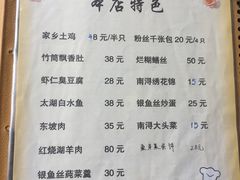 本店特色
家乡土鸡 48元/半只 粉丝千张包 20元/4只
竹筒飘香肚 38元 烂糊鳝丝 50元
虾仁臭豆腐 28元 南浔绣花锦 15元
太湖白水鱼 38元 银鱼丝炒蛋 25元
东坡肉 35元 南浔大头菜 15元
红烧湖羊肉 80元
银鱼丝莼菜羹 30元